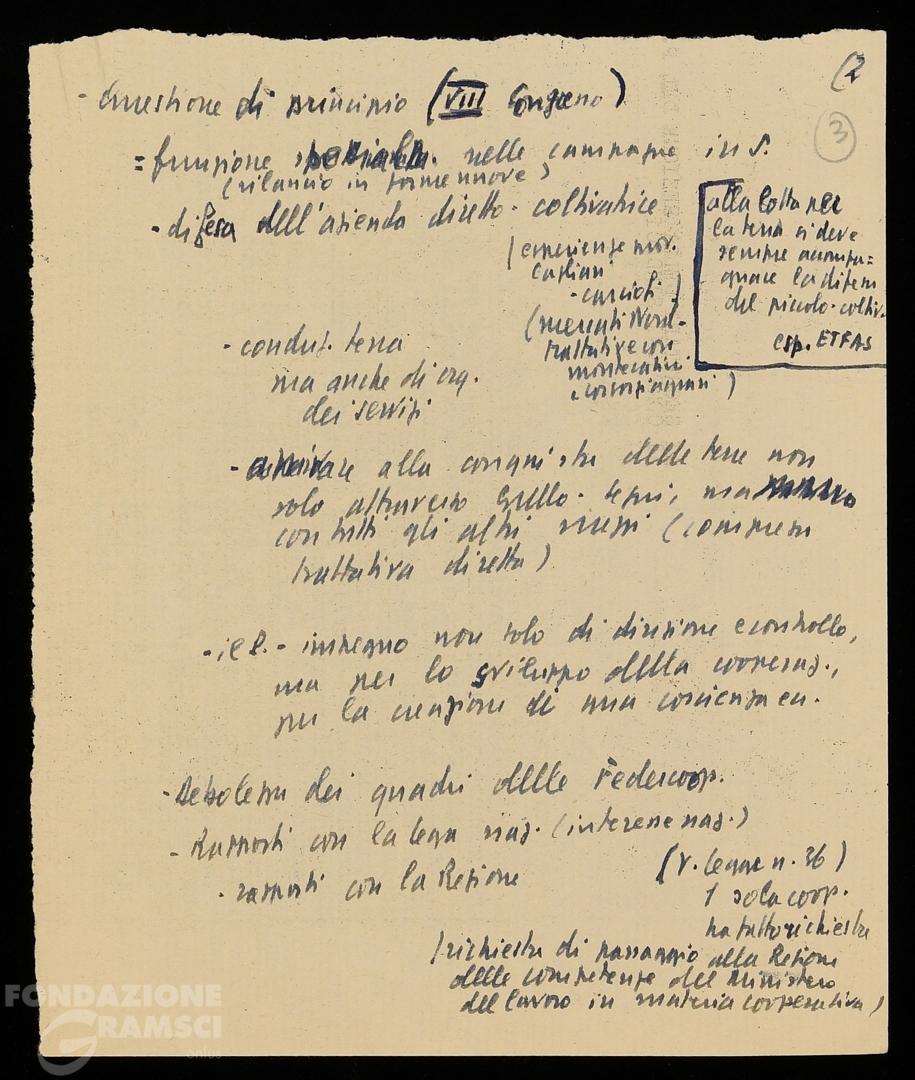 (2
3
- Questione di principio (VIII Congresso)
= funzione nelle campagne in S.
(rilancio in forme nuove)
- difesa dell'azienda diretto-coltivatrice
(esperienze prov.
Cagliari
- carciofi)
(mercati Nord-
trattative con
montecatini
e consorzi agrari)
alla lotta per
la terra si deve
sempre accompa=
gnare la difesa
del piccolo-coltiv.
esp. ETFAS
- conduz. terra
ma anche di org.
dei servizi
- arrivare alla conquista delle terre non
solo attraverso Gullo-Segni, ma
con tutti gli altri mezzi (compresa
trattativa diretta)
- impegno non solo di direzione e controllo,
ma per lo sviluppo della cooperaz.,
per la creazione di una coscienza
- Debolezza dei quadri delle Federcoop.
- Rapporti con la lega naz. (interesse naz.)
- rapporti con la Regione
(v. legge n. 36)
1 sola coop.
ha fatto richiesta
(richiesta di passaggio alla Regione
delle competenze del Ministero
del lavoro in materia cooperativa)
FONDAZIONE
GRAMSCI
onlus